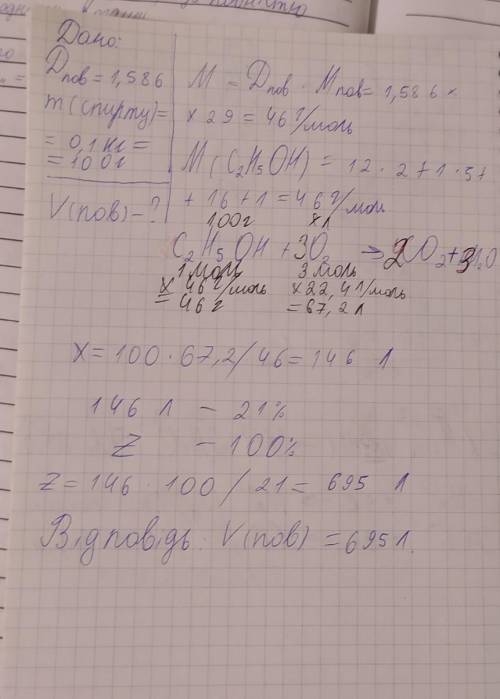 Дано:
Dпов = 1,586
m(спирту) =
= 0,1 кг =
= 100г
V(пов) - ?
M = Dпов · Mпов = 1,586 ×
× 29 = 46 г/моль
M(C₂H₅OH) = 12 · 2 + 1 · 5 +
+ 16 + 1 = 46 г/моль
100г xл
C₂H₅OH + 3O₂ => 2CO₂ + 3H₂O
1 моль 3 моль
× 46 г/моль × 22,4 л/моль
= 46 г = 67,2 л
X = 100 · 67,2 / 46 = 146 л
146 л – 21%
Z – 100%
Z = 146 · 100 / 21 = 695 л
Відповідь: V(пов) = 695 л.